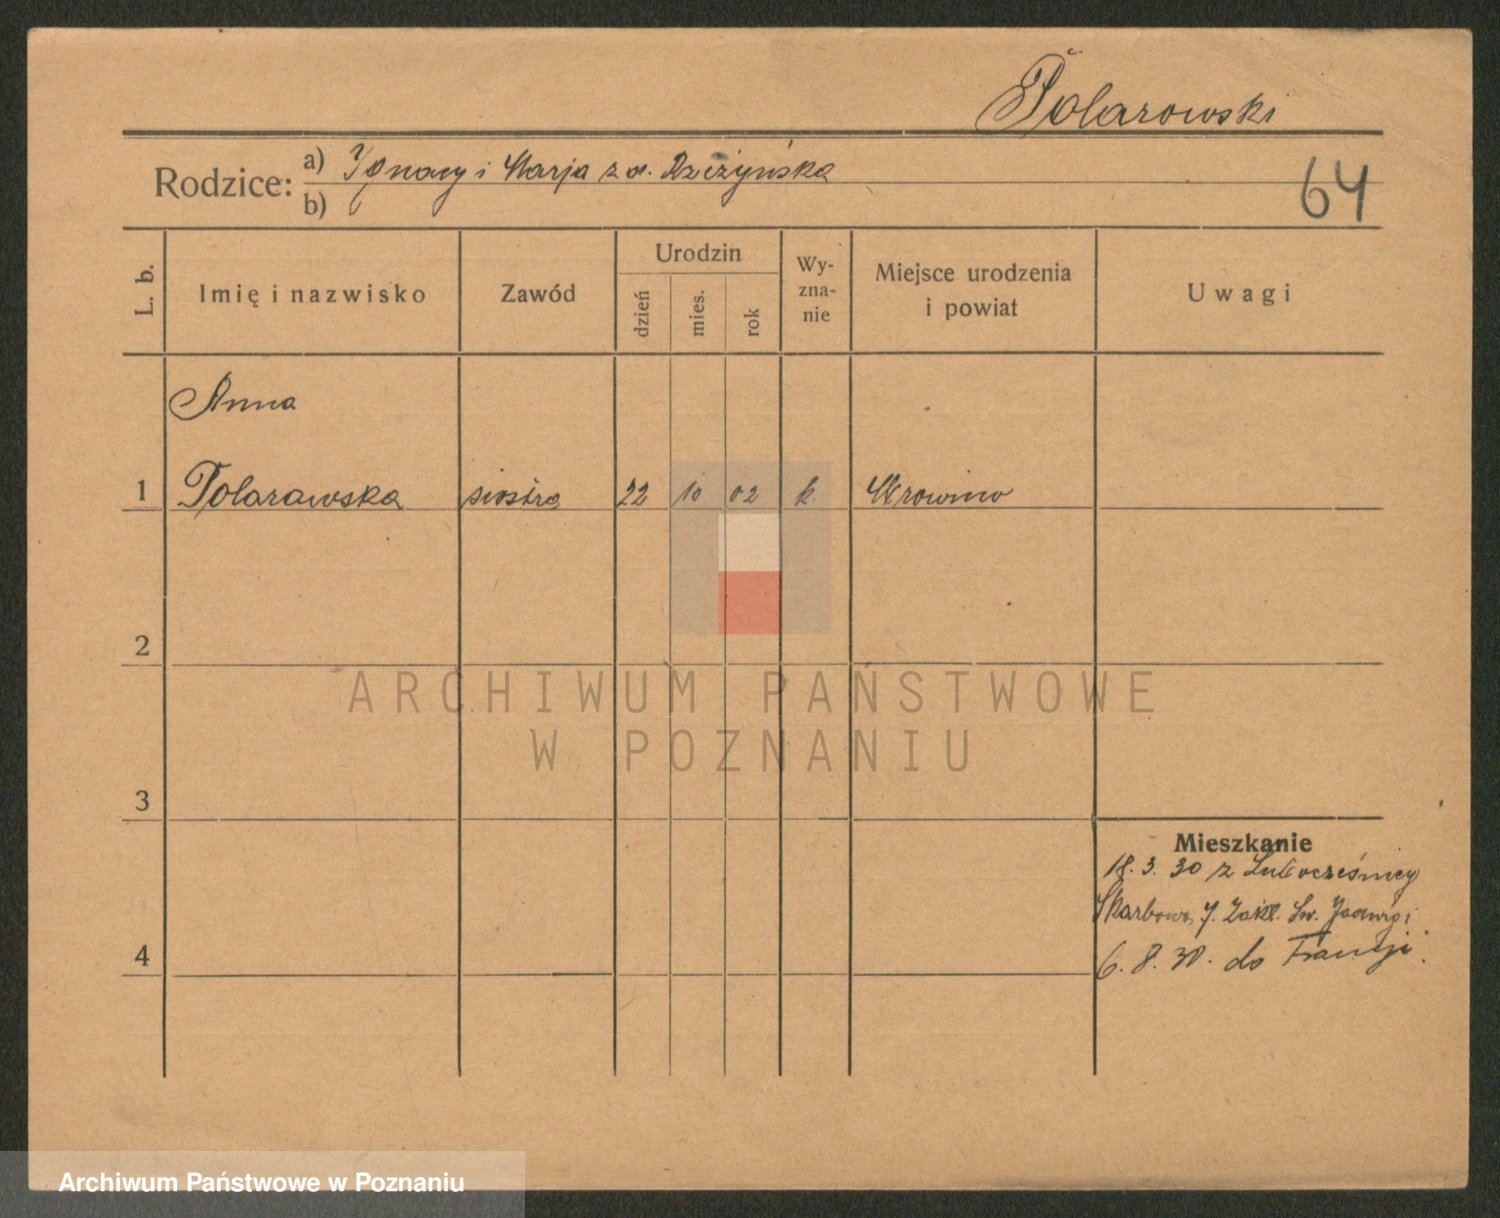 Polarowski
Rodzice: a) Ignacy i Marja z d.
b)
64
L. b.
Imię i nazwisko
Zawód
Urodzin
dzień
mies.
rok
Wy-
zna-
nie
Miejsce urodzenia
i powiat
Uwagi
Anna
1 Polarawska siostra 22 10 02 k. Mrowino
2
3
4
Mieszkanie
18. 3. 30 z
Skarbowa 7. Zakł. Św.
6. 8. 30. do Francji.
ARCHIWUM PAŃSTWOWE
W POZNANIU
Archiwum Państwowe w Poznaniu